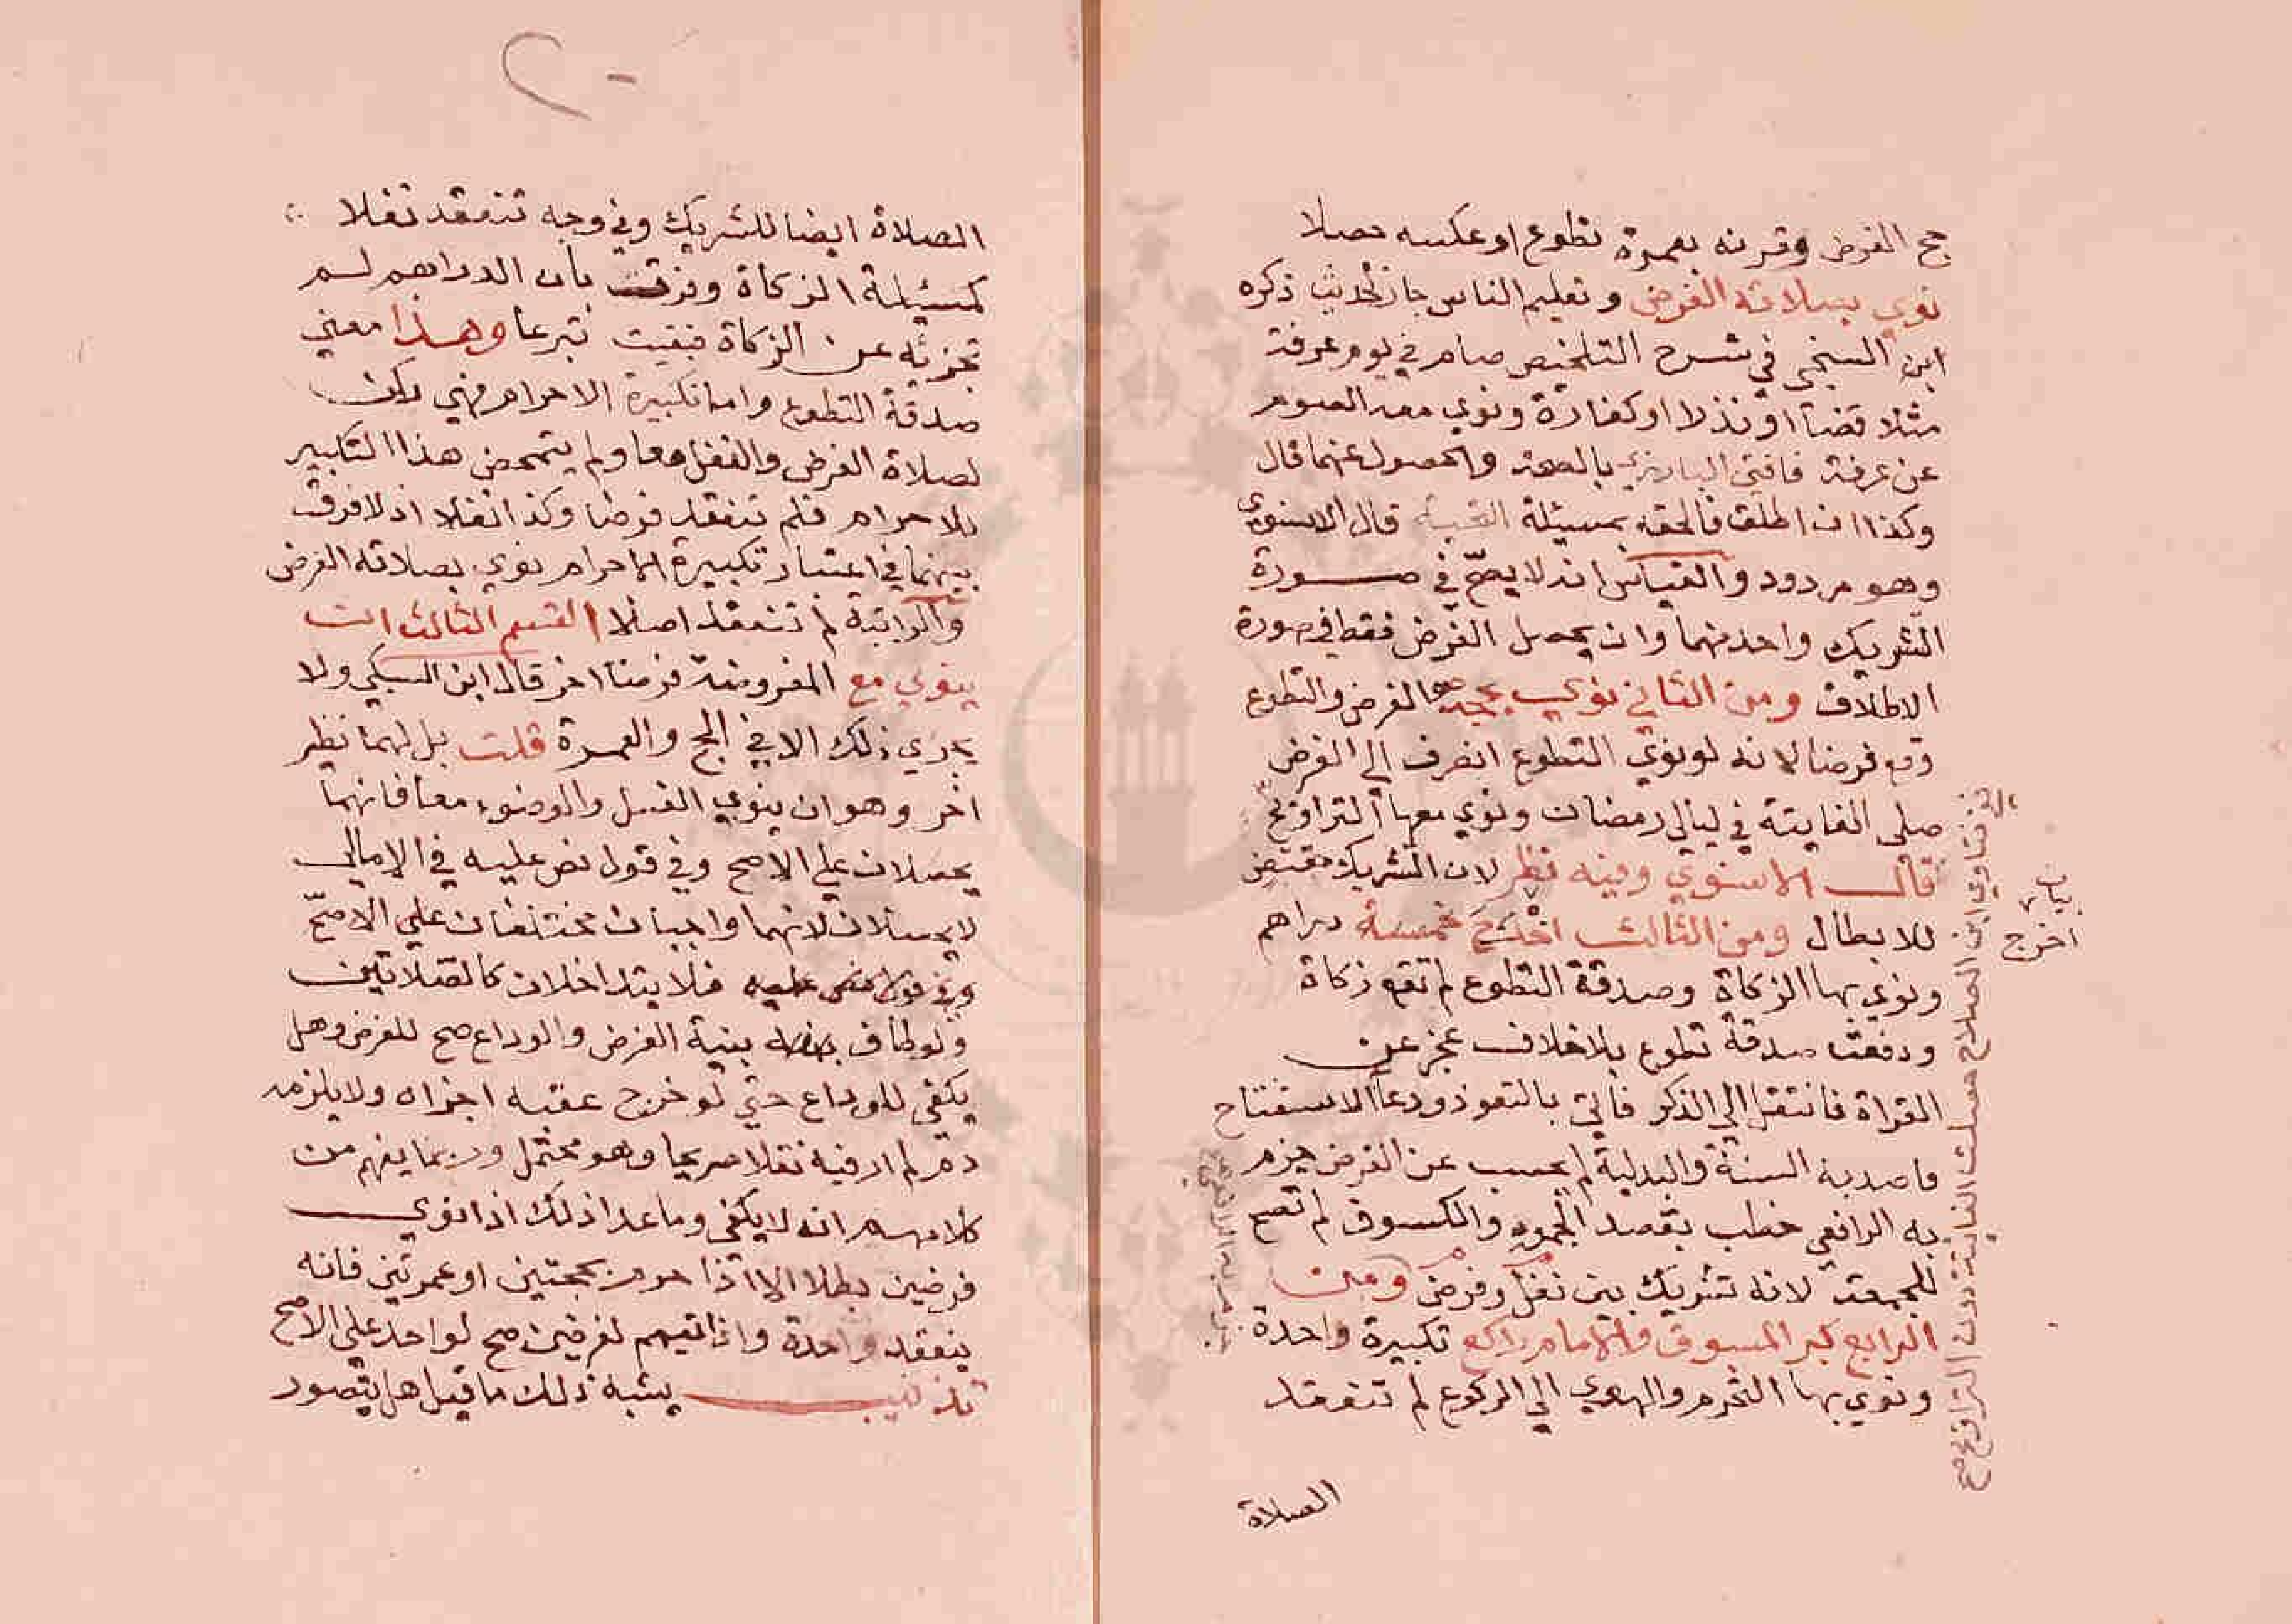 حج الفرض وقرنه بعمرة تطوع اوعكسه حصلا
نوي بصلاته الفرض وتعليم الناس جاز لحديث ذكره
ابن السنجي في شرح التلخيص صام في يوم عرفة
مثلا قضاً او نذلا اوكفارة ونوي معه الصوم
عن عرفة فافتي البارزي بالصحة والحصول عنهما قال
وكذا ان اطلق فالحقه بمسيئلة التحية قال الاسنوي
وهو مردود والقياس انه لا يصح في صورة
التشريك واحد منهما وان يحصل الفرض فقط في صورة
الاطلاق ومن الثاني نوي بحجة الفرض والتطوع
وقع فرضا لانه لو نوي التطوع انصرف الي الفرض
صلي الفايتة في ليالي رمضان ونوي معها التراويح
ففي فتاوي ابن الصلاح حصلت الفايتة دون التراويح صح
قال الاسنوي وفيه نظر لان التشريك مقتض
للابطال ومن الثالث اخرج خمسة دراهم
بيان
اخرج
ونوي بها الزكاة وصدقة التطوع لم تقع زكاة
ودفعت صدقة تطوع بلا خلاف عجز عن
القراة فانتقل الي الذكر فاتي بالتعوذ ودعاً الاستفتاح
قاصدا به السنة والبدلية لم يحسب عن الفرض جزم
به الرافعي خطب بقصد الجمعة والكسوف لم تصح
للجمعة لانه تشريك بين نفل وفرض ومن
الرابع كبر المسبوق والامام راكع تكبيرة واحدة
ونوي بها التحرم والهوي الي الركوع لم تنعقد
الصلاة
الصلاة ايضا للشريك وفي وجه تنعقد نفلا
كمسيئلة الزكاة وفرق بان الدراهم لم
تجزئه عن الزكاة فبقيت تبرعا وهذا معني
صدقة التطوع واما تكبيرة الاحرام فهي ركن
لصلاة الفرض والنفل معا ولم يتمحض هذا التكبير
للاحرام فلم تنعقد فرضا وكذا نفلا اذ لا فرق
بينهما في اعتبار تكبيرة الاحرام نوي بصلاته الفرض
والراتبة لم تنعقد اصلا القسم الثالث ان
ينوي مع المفروضة فرضاً اخر قال ابن السبكي ولا
يجزي ذلك الا في الحج والعمرة قلت بل لهما نظير
اخر وهو ان ينوي الغسل والوضوء معا فانهما
يحصلان علي الاصح وفي قول نص عليه في الامالي
لا يحصلان لانهما واجبان مختلفان علي الاصحّ
وفي قول نص عليه فلا يتداخلان كالصلاتين
ولو طاف بنية الفرض والوداع صح للفرض وهل
يكفي للوداع حتي لو خرج عقبه اجزاه ولا يلزمه
دم لم ار فيه نقلا صريحا وهو محتمل وربما يفهم من
كلامهم انه لا يكفي وما عدا ذلك اذا نوي
فرضين بطلا الا اذا احرم بحجتين او عمرتين فانه
ينعقد واحدة واذا تيمم لفرضين صح لواحد علي الاصح
تذنيب يشبه ذلك ما قيل هل يتصور